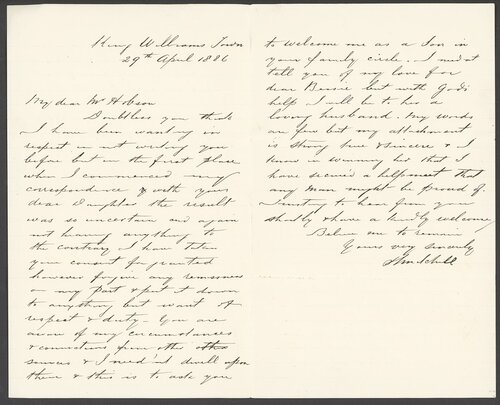 King Williams Town
29th April 1886
My dear Mr Hobson
Doubtless you think
I have been wanting in
respect in not writing you
before but in the first place
when I commenced my
correspondence with your
dear Daughter the result
was so uncertain and again
not having anything to
the contrary I have taken
your consent for granted
however forgive any remissness
on my part & put it down
to anything but want of
respect & duty. You are
aware of my circumstances
& connections from other
sources & I need'nt dwell upon
them & this is to ask you
to welcome me as a Son in
your family circle. I need not
tell you of my love for
dear Bessie but with God's
help I will be to her a
loving husband. My words
are few but my attachment
is strong true & sincere & I
know in winning her that I
have secured a helpmeet that
any man might be proud of.
Trusting to hear from you
shortly & have a kindly welcome
Believe me to remain
Yours very sincerely